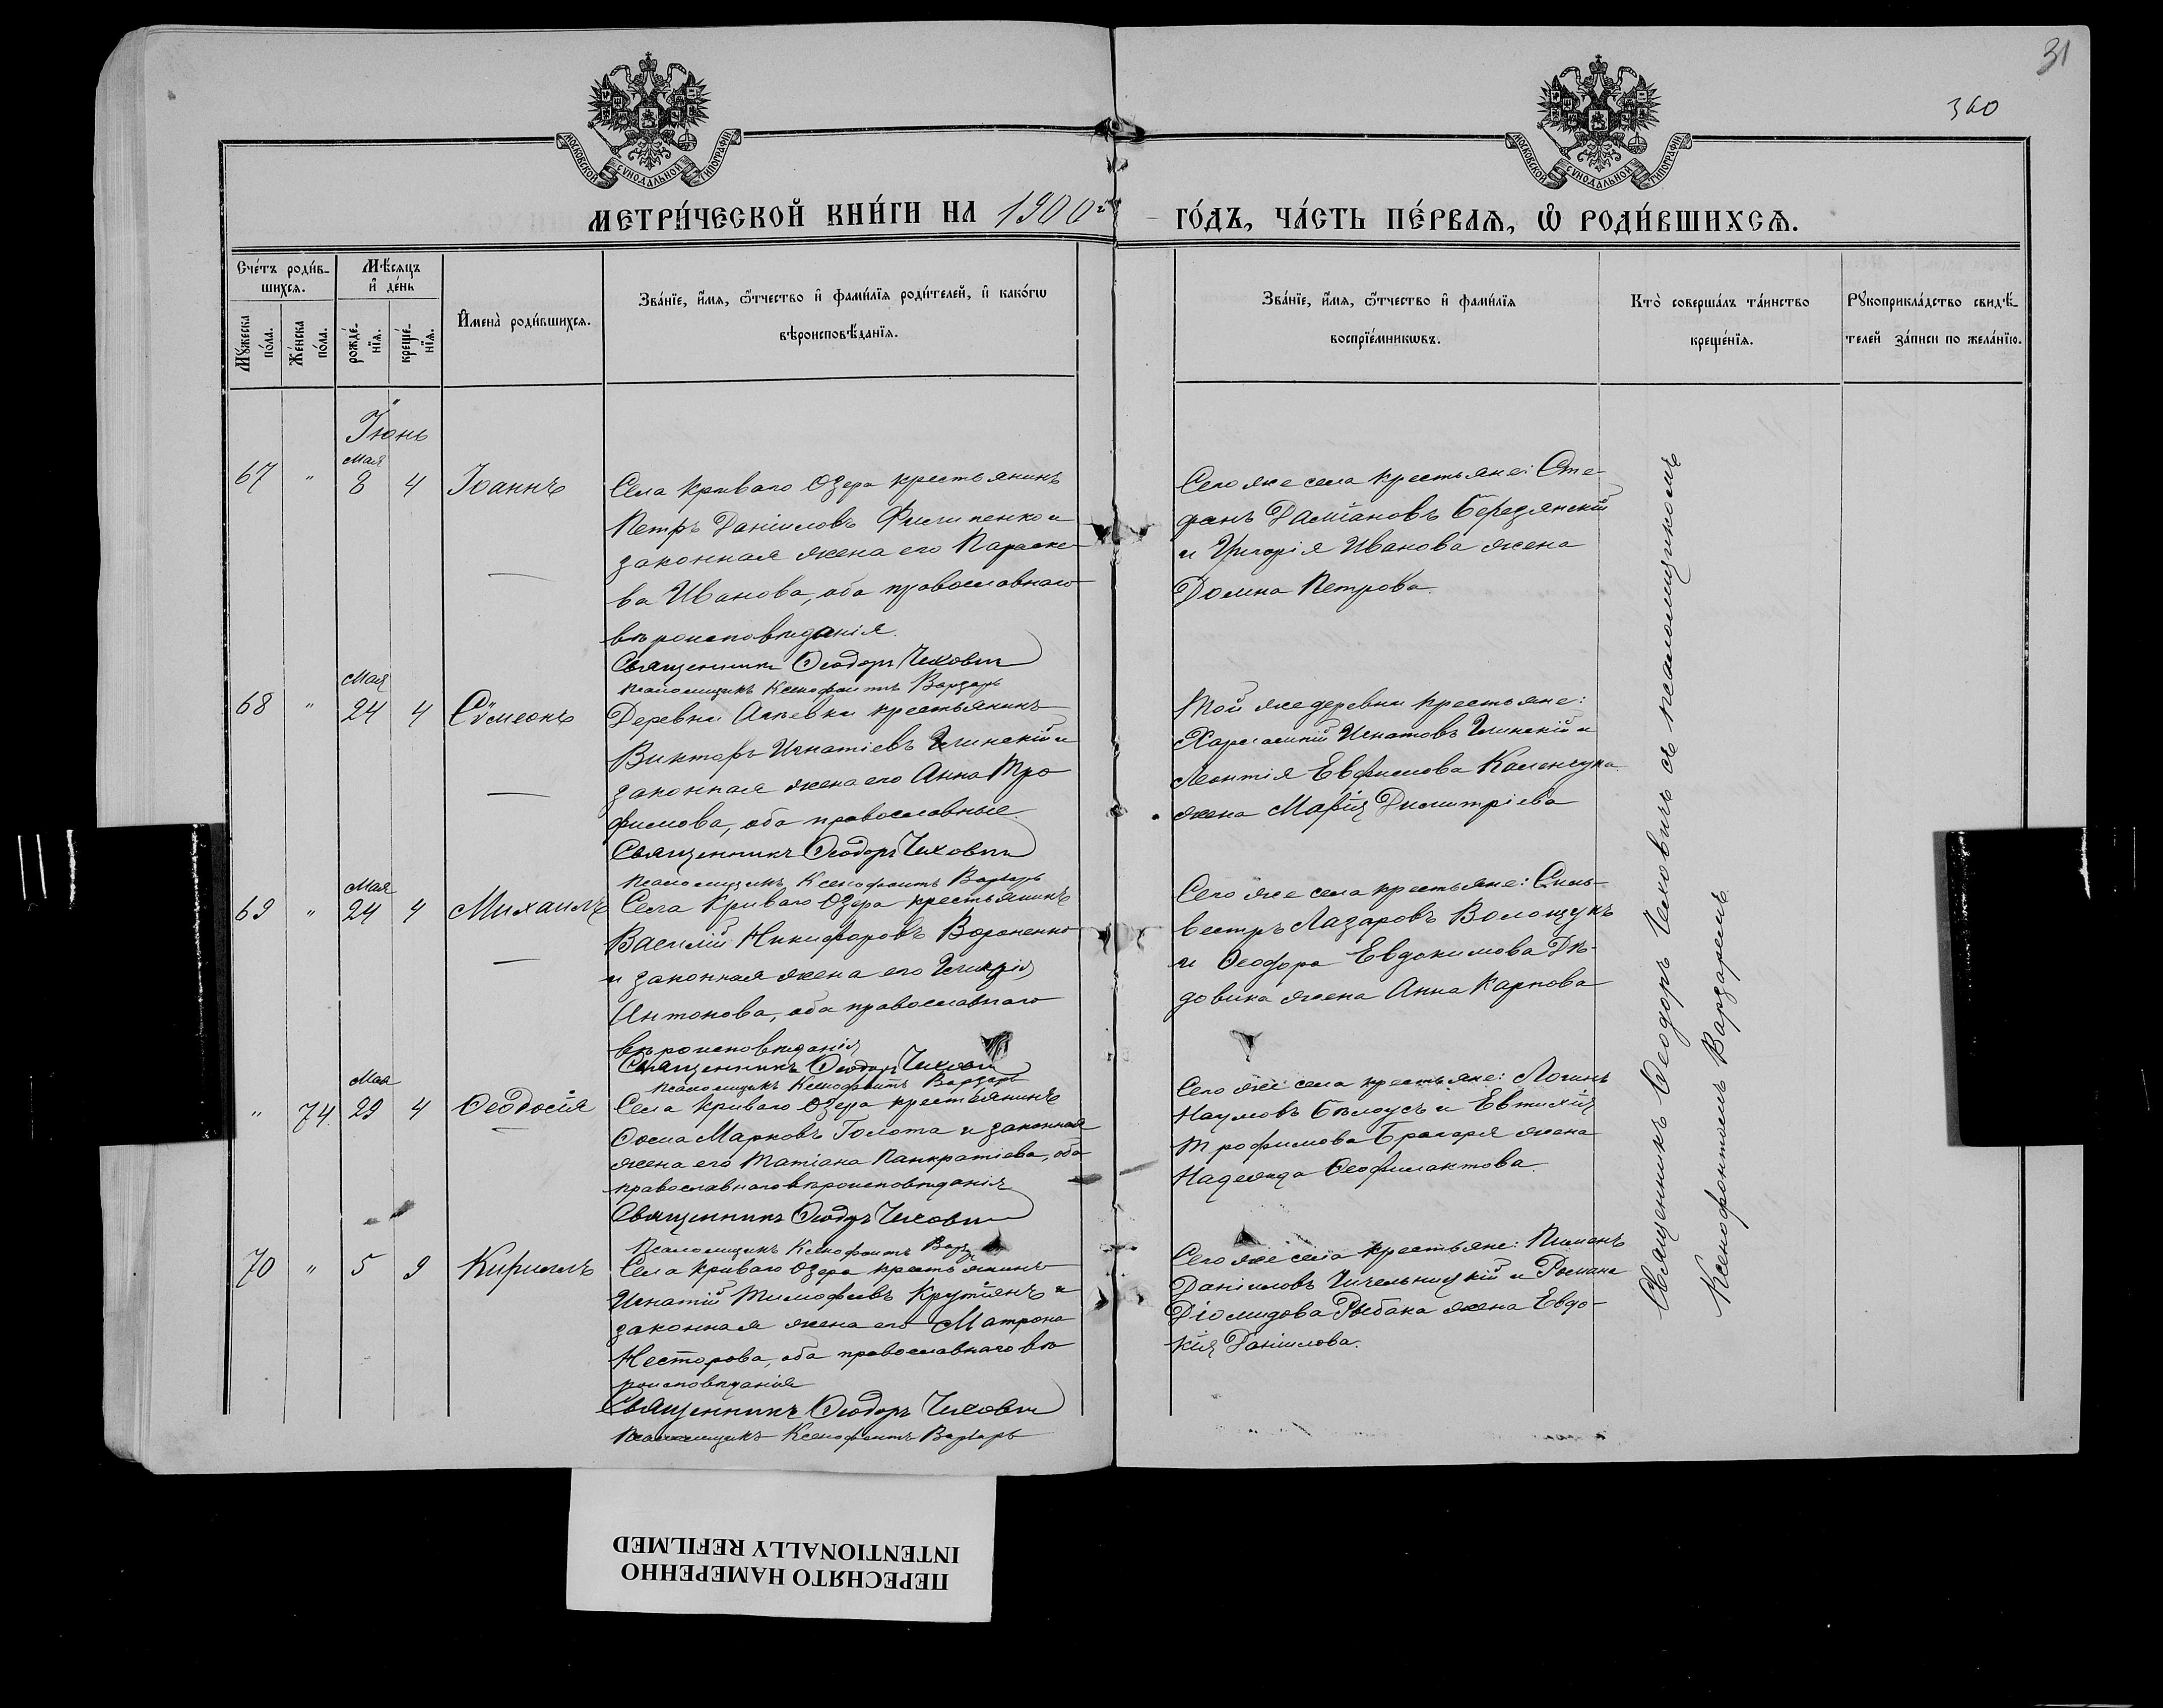 31
360
МОСКОВСКОЙ СѴНОДАЛЬНОЙ ТИПОГРАФІИ
МОСКОВСКОЙ СѴНОДАЛЬНОЙ ТИПОГРАФІИ
МЕТРИ́ЧЕСКОЙ КНИ́ГИ НА 1900й ГО́ДЪ, ЧА́СТЬ ПЕ́РВАѦ, Ѡ РОДИ́ВШИХСѦ.
Сче́тъ роди́в-
шихсѧ.
Мꙋ́жеска по́ла.
Же́нска по́ла.
Мѣ́сѧцъ
и҆ де́нь
рожде́-
нїѧ.
креще́-
нїѧ.
И҆мена̀ роди́вшихсѧ.
Зва́нїе, и҆́мѧ, ѻ҆́тчество и҆ фами́лїѧ роди́телей, и҆ како́гѡ
вѣроисповѣ́данїѧ.
Зва́нїе, и҆́мѧ, ѻ҆́тчество и҆ фами́лїѧ
воспрїе́мникѡвъ.
Кто̀ соверша́лъ та́инство
креще́нїѧ.
Рꙋкоприкла́дство свидѣ́-
телей за́писи по жела́нїю.
Іюнь
67 " Мая 8 4 Іоаннъ
Села Криваго Озера крестьянинъ
Петръ Даніиловъ Филипенко и
законная жена его Параске-
ва Иванова, оба православнаго
вѣроисповѣданія.
Священникъ Ѳеодоръ Чеховичъ
Псаломщикъ Ксенофонтъ Варзарь
Сего же села крестьяне: Сте-
фанъ Даміановъ Березянскій
и Григорія Иванова жена
Домна Петрова.
68 " Мая 24 4 Сѵмеонъ
Деревни крестьянинъ
Викторъ Игнатіевъ и
законная жена его Анна Тро
фимова, оба православные.
Священникъ Ѳеодоръ Чеховичъ
Псаломщикъ Ксенофонтъ Варзарь
Той же деревни крестьяне:
Харлампій Игнатовъ и
Леонтія Евфимова Каменчука
жена Марія Димитріева
69 " Мая 24 4 Михаилъ
Села Криваго Озера крестьянинъ
Василій Никифоровъ Вороненко
и законная жена его Гликерія
Антонова, оба православнаго
вѣроисповѣданія
Священникъ Ѳеодоръ Чеховичъ
Псаломщикъ Ксенофонтъ Варзарь
Сего же села крестьяне: Силь-
вестръ Лазаровъ Волощукъ
и Ѳеодора Евдокимова Дѣ-
довика жена Анна Карпова
" 74. Мая 29 4 Ѳеодосія
Села Криваго Озера крестьянинъ
Ѳома Марковъ Голота и законная
жена его Татіана Панкратіева, оба
православнаго вѣроисповѣданія
Священникъ Ѳеодоръ Чеховичъ
Псаломщикъ Ксенофонтъ Варзарь
Сего же села крестьяне: Логинъ
Наумовъ Бѣлоусъ и Евтихія
Трофимова Брагаря жена
Надежда Ѳеофилактова.
70 " 5 9 Кириллъ
Села Криваго Озера крестьянинъ
Игнатій Тимофеевъ Крутіянъ и
законная жена его Матрона
Несторова, оба православнаго вѣ
роисповѣданія
Священникъ Ѳеодоръ Чеховичъ
Псаломщикъ Ксенофонтъ Варзарь
Сего же села крестьяне: Пименъ
Даніиловъ Чичельницкій и Романа
Діомидова Рыбака жена Евдо-
кія Даніилова.
Священникъ Ѳеодоръ Чеховичъ съ псаломщикомъ
Ксенофонтомъ Варзаремъ
ПЕРЕСНЯТО НАМЕРЕННО
INTENTIONALLY REFILMED